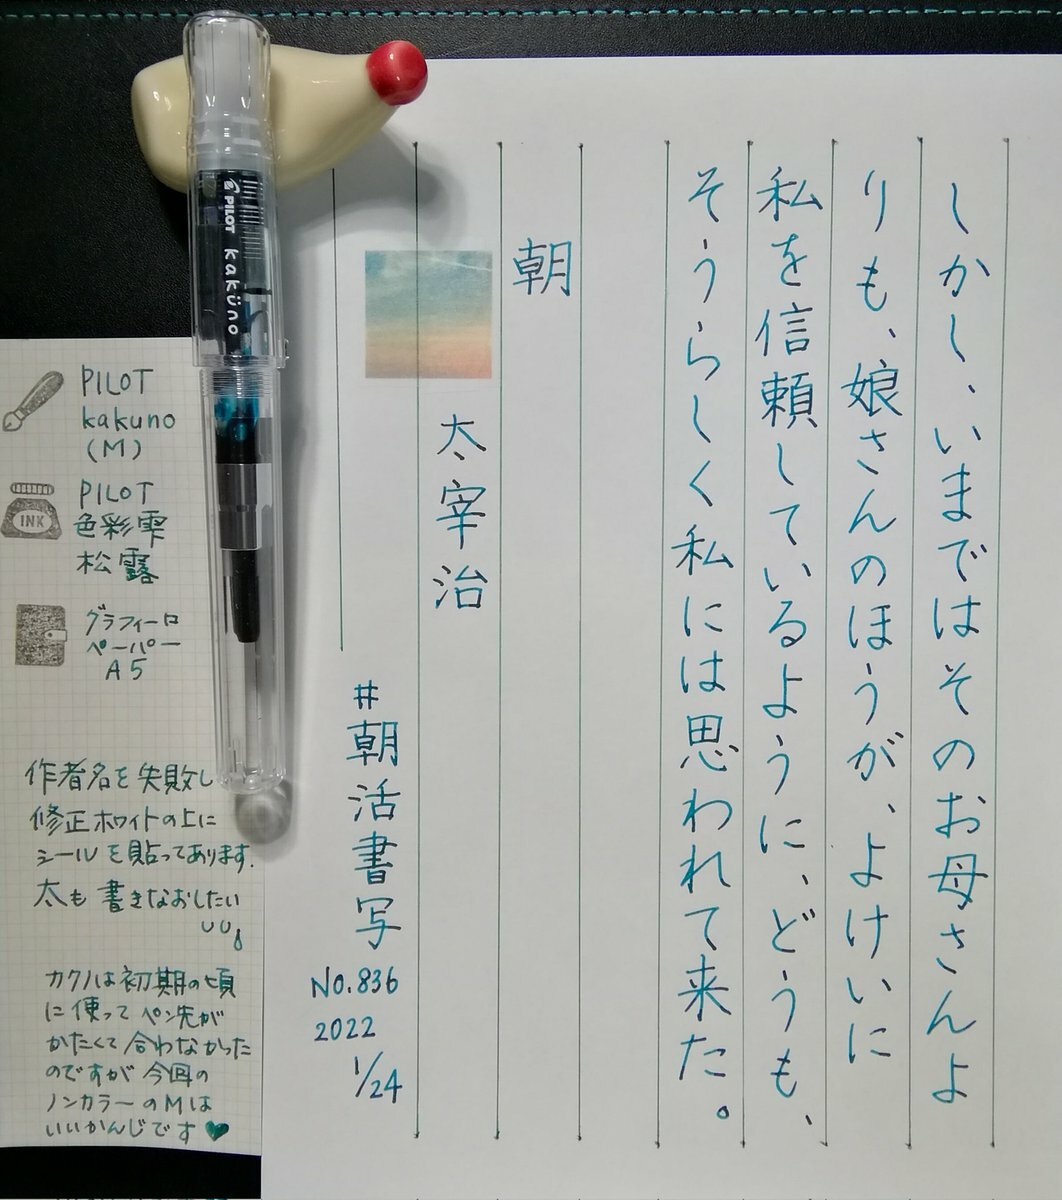 しかし、いまではそのお母さんよ
りも、娘さんのほうが、よけいに
私を信頼しているように、どうも、
そうらしく私には思われて来た。
朝
太宰治
#朝活書写
No.836
2022
1/24
PILOT
kaküno
PILOT
kakuno
(M)
INK
PILOT
色彩雫
松露
グラフィーロ
ペーパー
A5
作者名を失敗し
修正ホワイトの上に
シールを貼ってあります.
太も書きなおしたい
カクノは初期の頃
に使ってペン先が
かたくて合わなかった
のですが今回の
ノンカラーのMは
いいかんじです♥